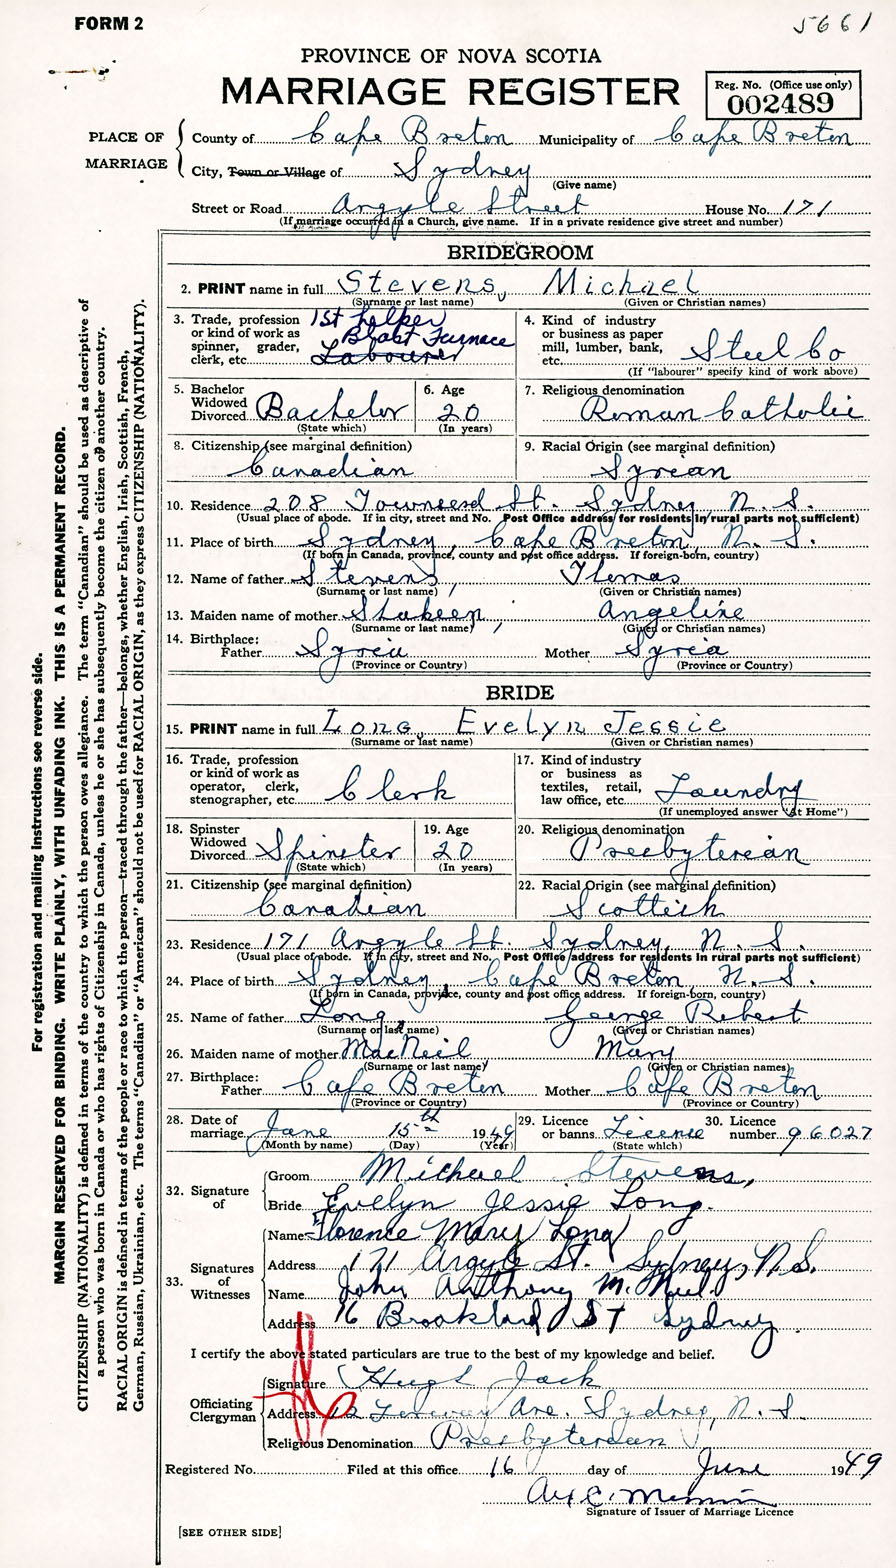 FORM 2
5661
PROVINCE OF NOVA SCOTIA
MARRIAGE REGISTER
Reg. No. (Office use only)
002489
PLACE OF MARRIAGE
County of Cape Breton Municipality of Cape Breton
City, Town or Village of Sydney
(Give name)
Street or Road Argyle Street House No. 171
(If marriage occurred in a Church, give name. If in a private residence give street and number)
BRIDEGROOM
2. PRINT name in full Stevens, Michael
(Surname or last name) (Given or Christian names)
3. Trade, profession or kind of work as spinner, grader, clerk, etc. 1st helper Blast Furnace Labourer
4. Kind of industry or business as paper mill, lumber, bank, etc. Steel Co
(If "labourer" specify kind of work above)
5. Bachelor Widowed Divorced Bachelor
(State which)
6. Age 20
(In years)
7. Religious denomination
Roman Catholic
8. Citizenship (see marginal definition)
Canadian
9. Racial Origin (see marginal definition)
Syrian
10. Residence 208 Townsend St. Sydney, N. S.
(Usual place of abode. If in city, street and No. Post Office address for residents in rural parts not sufficient)
11. Place of birth Sydney, Cape Breton, N. S.
(If born in Canada, province, county and post office address. If foreign-born, country)
12. Name of father Stevens, Thomas
(Surname or last name) (Given or Christian names)
13. Maiden name of mother Shabeen, Angeline
(Surname or last name) (Given or Christian names)
14. Birthplace:
Father Syria Mother Syria
(Province or Country) (Province or Country)
BRIDE
15. PRINT name in full Long, Evelyn Jessie
(Surname or last name) (Given or Christian names)
16. Trade, profession or kind of work as operator, clerk, stenographer, etc. Clerk
17. Kind of industry or business as textiles, retail, law office, etc. Laundry
(If unemployed answer "At Home")
18. Spinster Widowed Divorced Spinster
(State which)
19. Age 20
(In years)
20. Religious denomination
Presbyterian
21. Citizenship (see marginal definition)
Canadian
22. Racial Origin (see marginal definition)
Scottish
23. Residence 171 Argyle St. Sydney, N. S.
(Usual place of abode. If in city, street and No. Post Office address for residents in rural parts not sufficient)
24. Place of birth Sydney, Cape Breton, N. S.
(If born in Canada, province, county and post office address. If foreign-born, country)
25. Name of father Long, George Robert
(Surname or last name) (Given or Christian names)
26. Maiden name of mother MacNeil Mary
(Surname or last name) (Given or Christian names)
27. Birthplace:
Father Cape Breton Mother Cape Breton
(Province or Country) (Province or Country)
28. Date of marriage June 15th 1949
(Month by name) (Day) (Year)
29. Licence or banns Licence
(State which)
30. Licence number 96027
32. Signature of
Groom Michael Stevens,
Bride Evelyn Jessie Long.
33. Signatures of Witnesses
Name Florence Mary Long
Address 171 Argyle St. Sydney, N.S.
Name John Anthony
Address 16 Brookland ST Sydney
I certify the above stated particulars are true to the best of my knowledge and belief.
Officiating Clergyman
Signature Hugh Jack
Address 12 Ave. Sydney, N. S.
Religious Denomination Presbyterian
Registered No. Filed at this office 16 day of June 1949
Signature of Issuer of Marriage Licence
[SEE OTHER SIDE]
For registration and mailing instructions see reverse side.
MARGIN RESERVED FOR BINDING. WRITE PLAINLY, WITH UNFADING INK. THIS IS A PERMANENT RECORD.
CITIZENSHIP (NATIONALITY) is defined in terms of the country to which the person owes allegiance. The term "Canadian" should be used as descriptive of
a person who was born in Canada or who has rights of Citizenship in Canada, unless he or she has subsequently become the citizen of another country.
RACIAL ORIGIN is defined in terms of the people or race to which the person—traced through the father—belongs, whether English, Irish, Scottish, French,
German, Russian, Ukrainian, etc. The terms "Canadian" or "American" should not be used for RACIAL ORIGIN, as they express CITIZENSHIP (NATIONALITY).